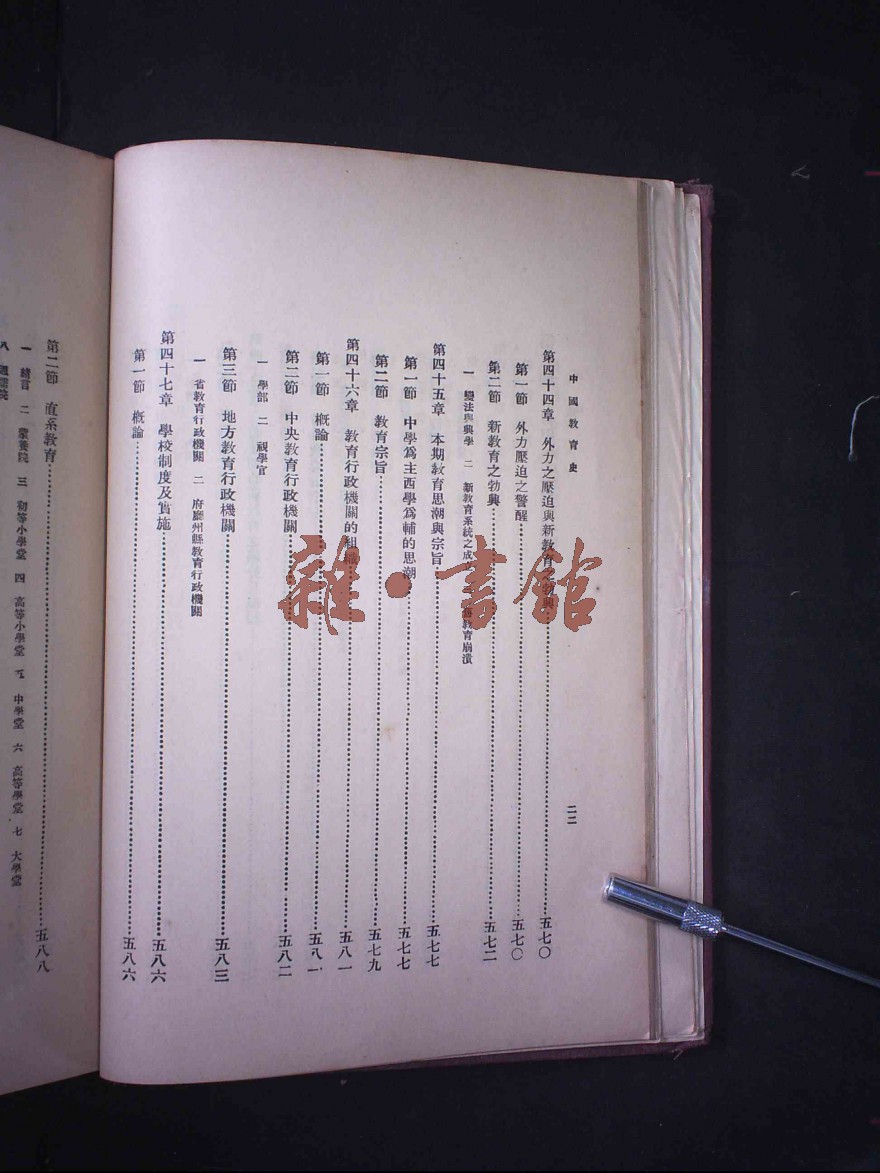 中國教育史
二二
第四十四章　外力之壓迫與新教育之勃興……五七〇
第一節　外力壓迫之警醒……五七〇
第二節　新教育之勃興……五七二
一　變法與興學　二　新教育系統之成　教育崩潰
第四十五章　本期教育思潮與宗旨……五七七
第一節　中學爲主西學爲輔的思潮……五七七
第二節　教育宗旨……五七九
第四十六章　教育行政機關的組織……五八一
第一節　概論……五八一
第二節　中央教育行政機關……五八二
一　學部　二　視學官
第三節　地方教育行政機關……五八三
一　省教育行政機關　二　府廳州縣教育行政機關
第四十七章　學校制度及實施……五八六
第一節　概論……五八六
第二節　直系教育……五八八
一　緒言　二　蒙養院　三　初等小學堂　四　高等小學堂　五　中學堂　六　高等學堂　七　大學堂
八　通儒院
雜·書館